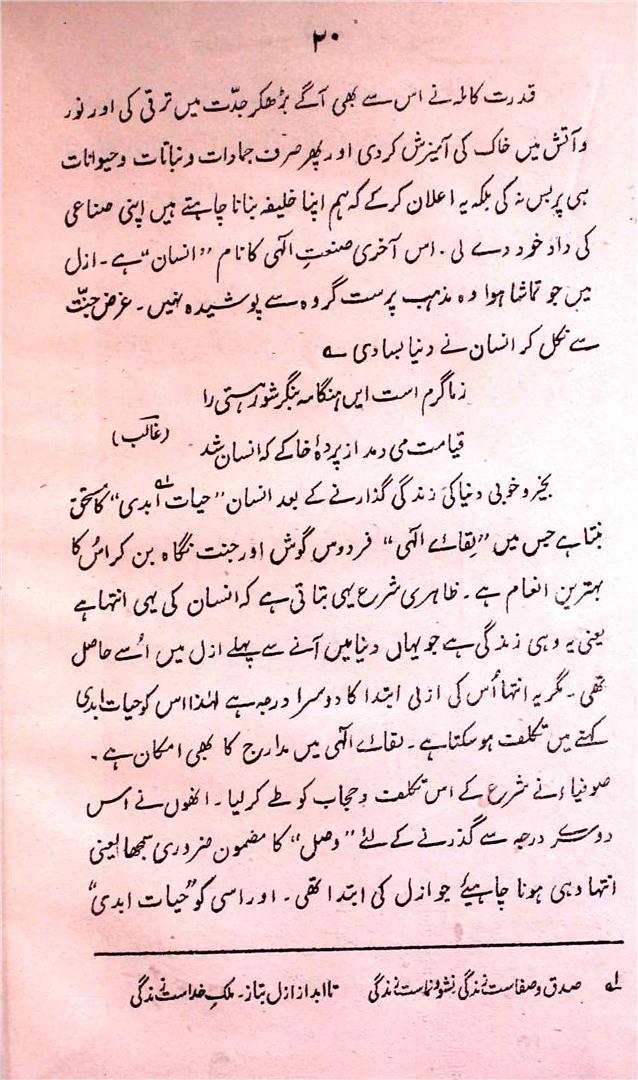 ۲۰
قدرت کاملہ نے اس سے بھی آگے بڑھکر جدّت میں ترقی کی اور نور
و آتش میں خاک کی آمیزش کردی اور پھر صرف جمادات و نباتات و حیوانات
ہی پر بس نہ کی بلکہ یہ اعلان کر کے کہ ہم اپنا خلیفہ بنانا چاہتے ہیں اپنی صناعی
کی داد خود دے لی۔ اس آخری صنعتِ الٰہی کا نام "انسان" ہے۔ ازل
میں جو تماشا ہوا وہ مذہب پرست گروہ سے پوشیدہ نہیں۔ غرض جنّت
سے نکل کر انسان نے دنیا بسا دی ؎
زما گرم است ایں ہنگامہ بنگر شور ہستی را
قیامت می دمد از پردۂ خاکے کہ انساں شد (غالب)
بخیر و خوبی دنیا کی زندگی گذارنے کے بعد انسان "حیات ابدی"؎۱ کا مستحق
بنتا ہے جس میں "بقائے الٰہی" فردوس گوش اور جنت نگاہ بن کر اُس کا
بہترین انعام ہے۔ ظاہری شرع یہی بتاتی ہے کہ انسان کی یہی انتہا ہے
یعنی یہ وہی زندگی ہے جو یہاں دنیا میں آنے سے پہلے ازل میں اُسے حاصل
تھی۔ مگر یہ انتہا اُس کی ازلی ابتدا کا دوسرا درجہ ہے لہٰذا اس کو حیات ابدی
کہنے میں تکلف ہو سکتا ہے۔ بقائے الٰہی میں مدارج کا بھی امکان ہے۔
صوفیاء نے شرع کے اس تکلف و حجاب کو طے کر لیا۔ انھوں نے اس
دوسرے درجہ سے گذرنے کے لئے "وصل" کا مضمون ضروری سمجھا یعنی
انتہا وہی ہونا چاہیئے جو ازل کی ابتدا تھی۔ اور اسی کو "حیات ابدی"
؎۱ صدق و صفاست زندگی نشو و نماست زندگی تا ابد از ازل بتاز۔ ملکِ خداست زندگی